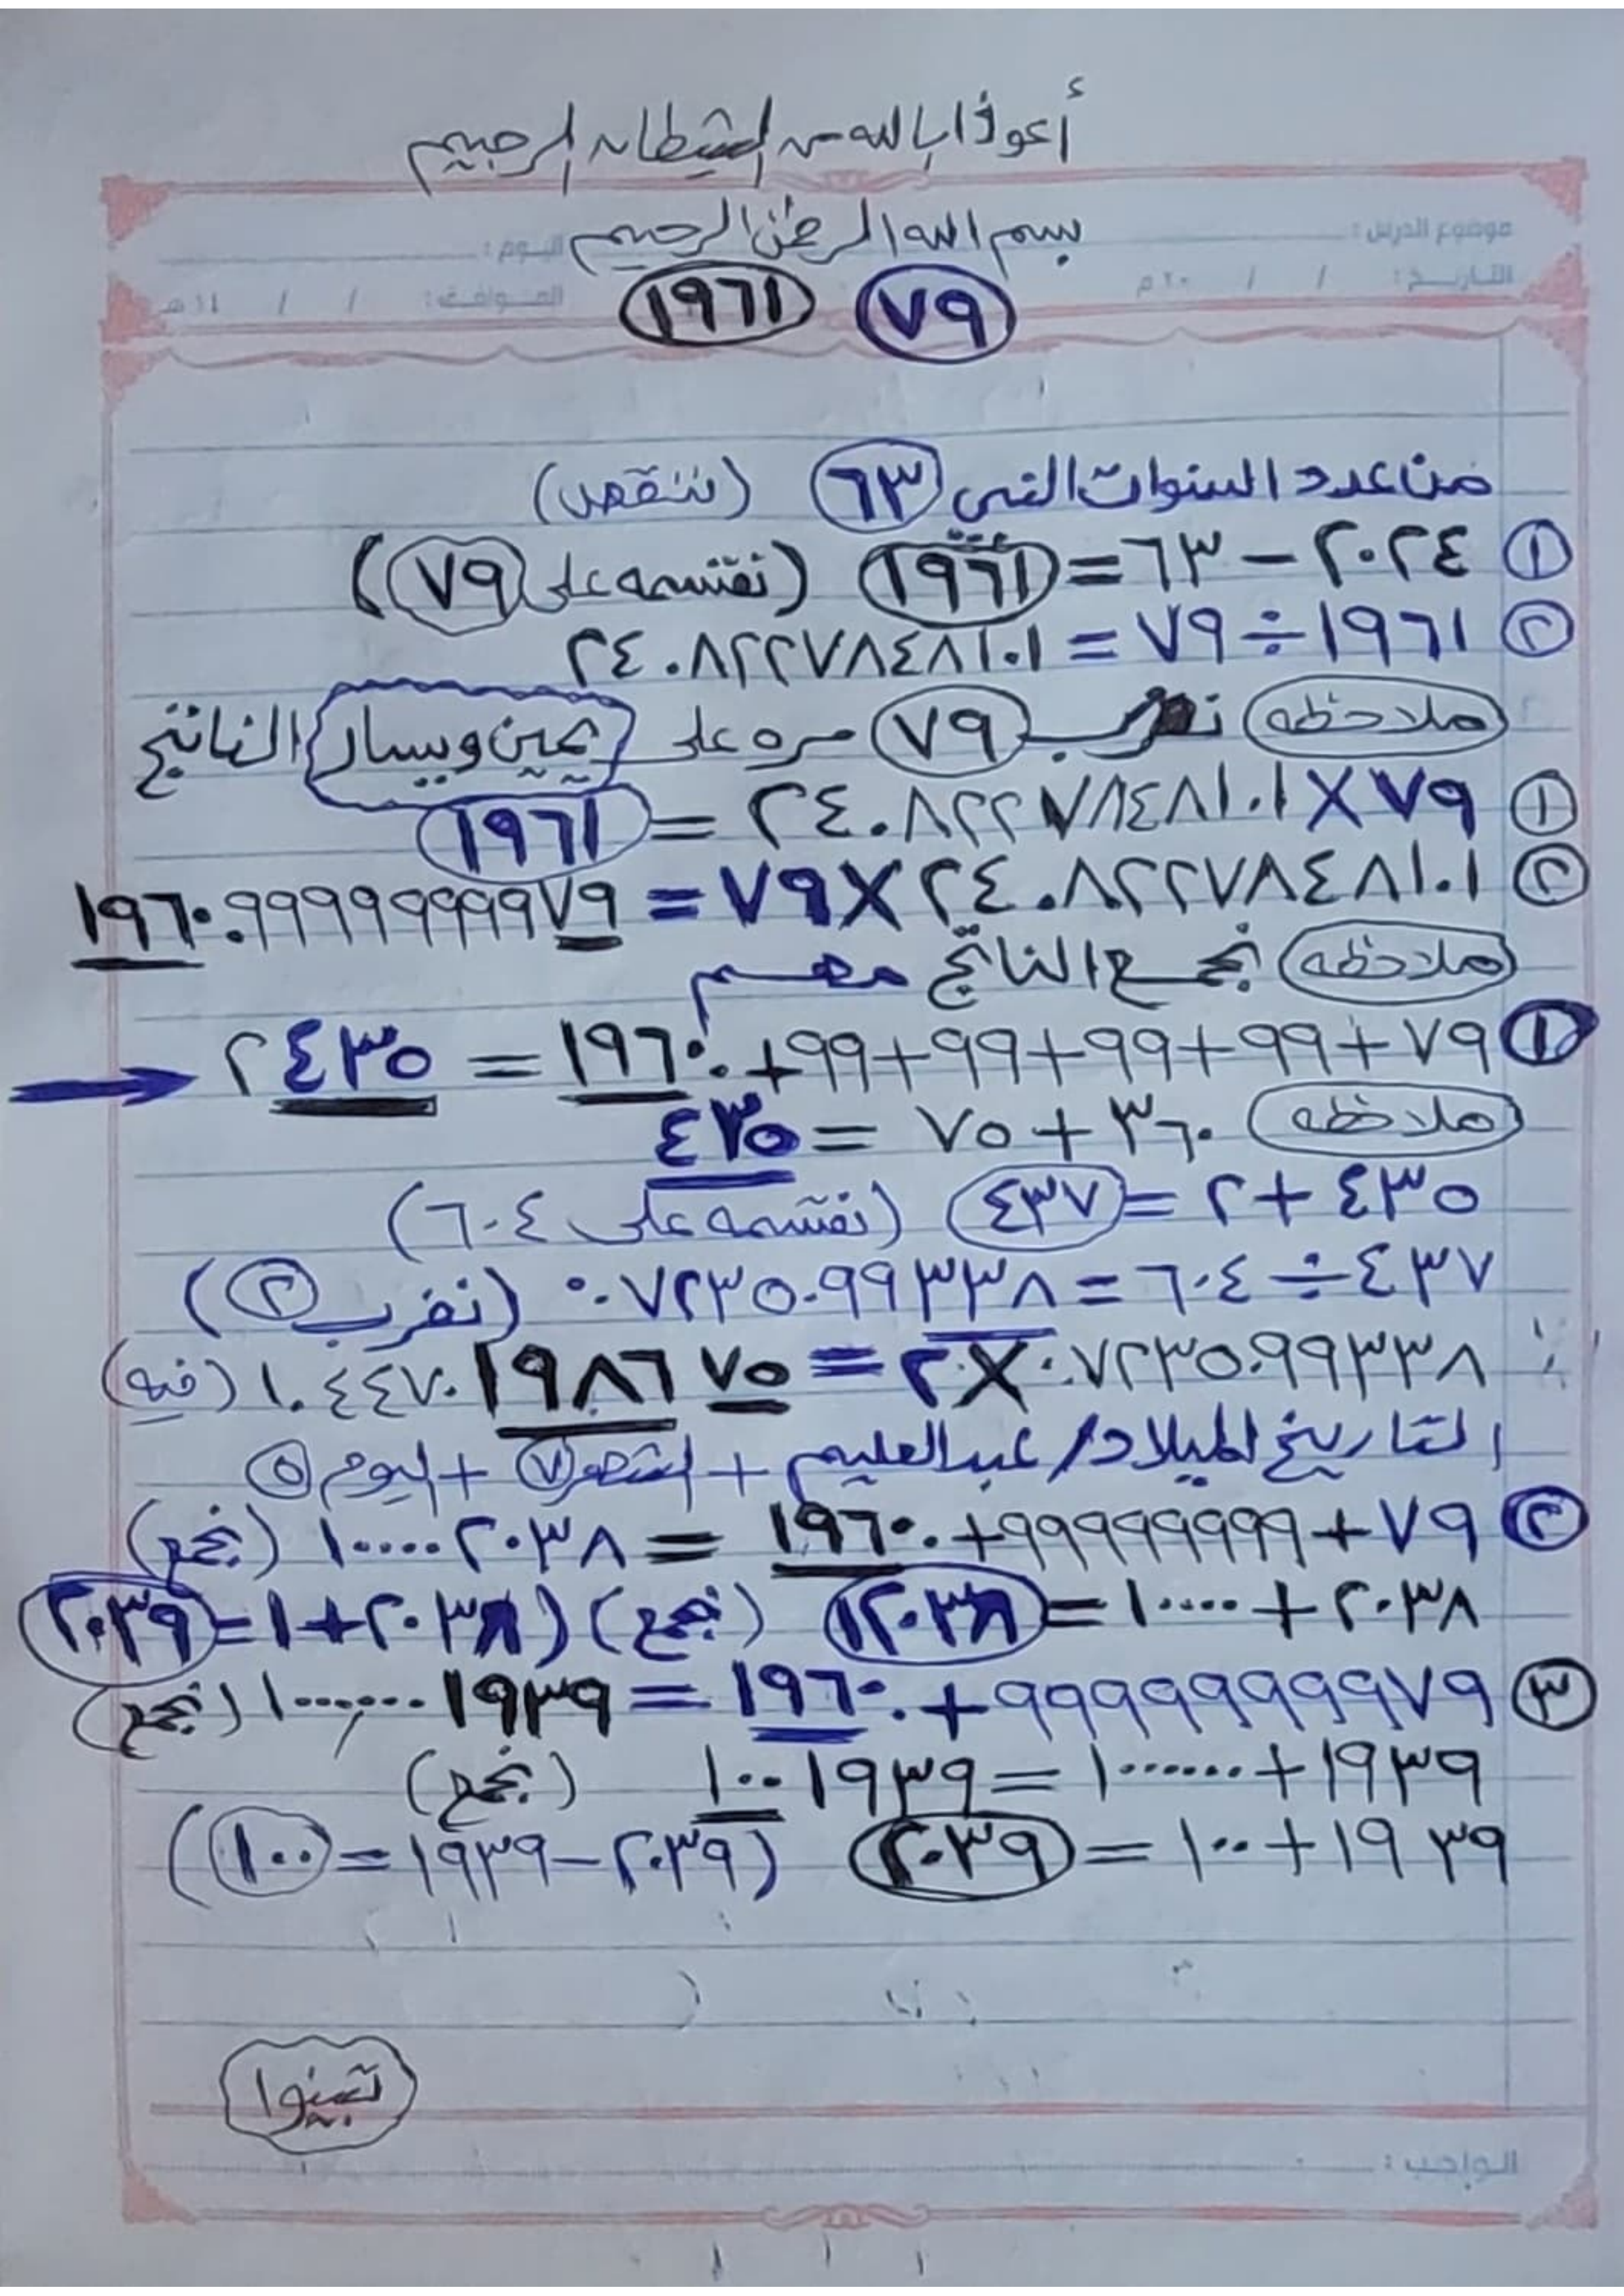 أعوذ بالله من الشيطان الرجيم
موضوع الدرس: اليوم:
بسم الله الرحمن الرحيم
التاريخ: / / ٢٠م الموافق: / / ١٤هـ
٧٩ ١٩٦١
من عدد السنوات التي ٦٣ (ننقص)
١ ٢٠٢٤ - ٦٣ = ١٩٦١ (نقسمه على ٧٩)
٢ ١٩٦١ ÷ ٧٩ = ٢٤.٨٢٢٧٨٤٨١٠١
ملاحظه نضرب ٧٩ مره على يمين ويسار الناتج
١ ٧٩ × ٢٤.٨٢٢٧٨٤٨١٠١ = ١٩٦١
٢ ٢٤.٨٢٢٧٨٤٨١٠١ × ٧٩ = ١٩٦٠.٩٩٩٩٩٩٩٩٧٩
ملاحظه نجمع الناتج مهم
١ ٧٩ + ٩٩ + ٩٩ + ٩٩ + ٩٩ + ١٩٦٠ = ٢٤٣٥
ملاحظه ٣٦٠ + ٧٥ = ٤٣٥
٤٣٥ + ٢ = ٤٣٧ (نقسمه على ٦٠٤)
٤٣٧ ÷ ٦٠٤ = ٠.٧٢٣٥٠٩٩٣٣٨ (نضرب ٢)
٠.٧٢٣٥٠٩٩٣٣٨ × ٢ = ١.٤٤٧٠١٩٨٦٧٥ (فيه)
التاريخ الميلاد/ عبدالعليم + الشهر ٧ + اليوم ٥
٢ ٧٩ + ٩٩٩٩٩٩٩٩ + ١٩٦٠ = ١٠٠٠٠٢٠٣٨ (نجمع)
٢٠٣٨ + ١٠٠٠٠ = ١٢٠٣٨ (نجمع) (٢٠٣٨ + ١ = ٢٠٣٩
٣ ٩٩٩٩٩٩٩٩٧٩ + ١٩٦٠ = ١٠٠٠٠٠٠١٩٣٩ (نجمع)
١٩٣٩ + ١٠٠٠٠٠٠ = ١٠٠١٩٣٩ (نجمع)
١٩٣٩ + ١٠٠ = ٢٠٣٩ (٢٠٣٩ - ١٩٣٩ = ١٠٠)
تبينوا
الواجب: